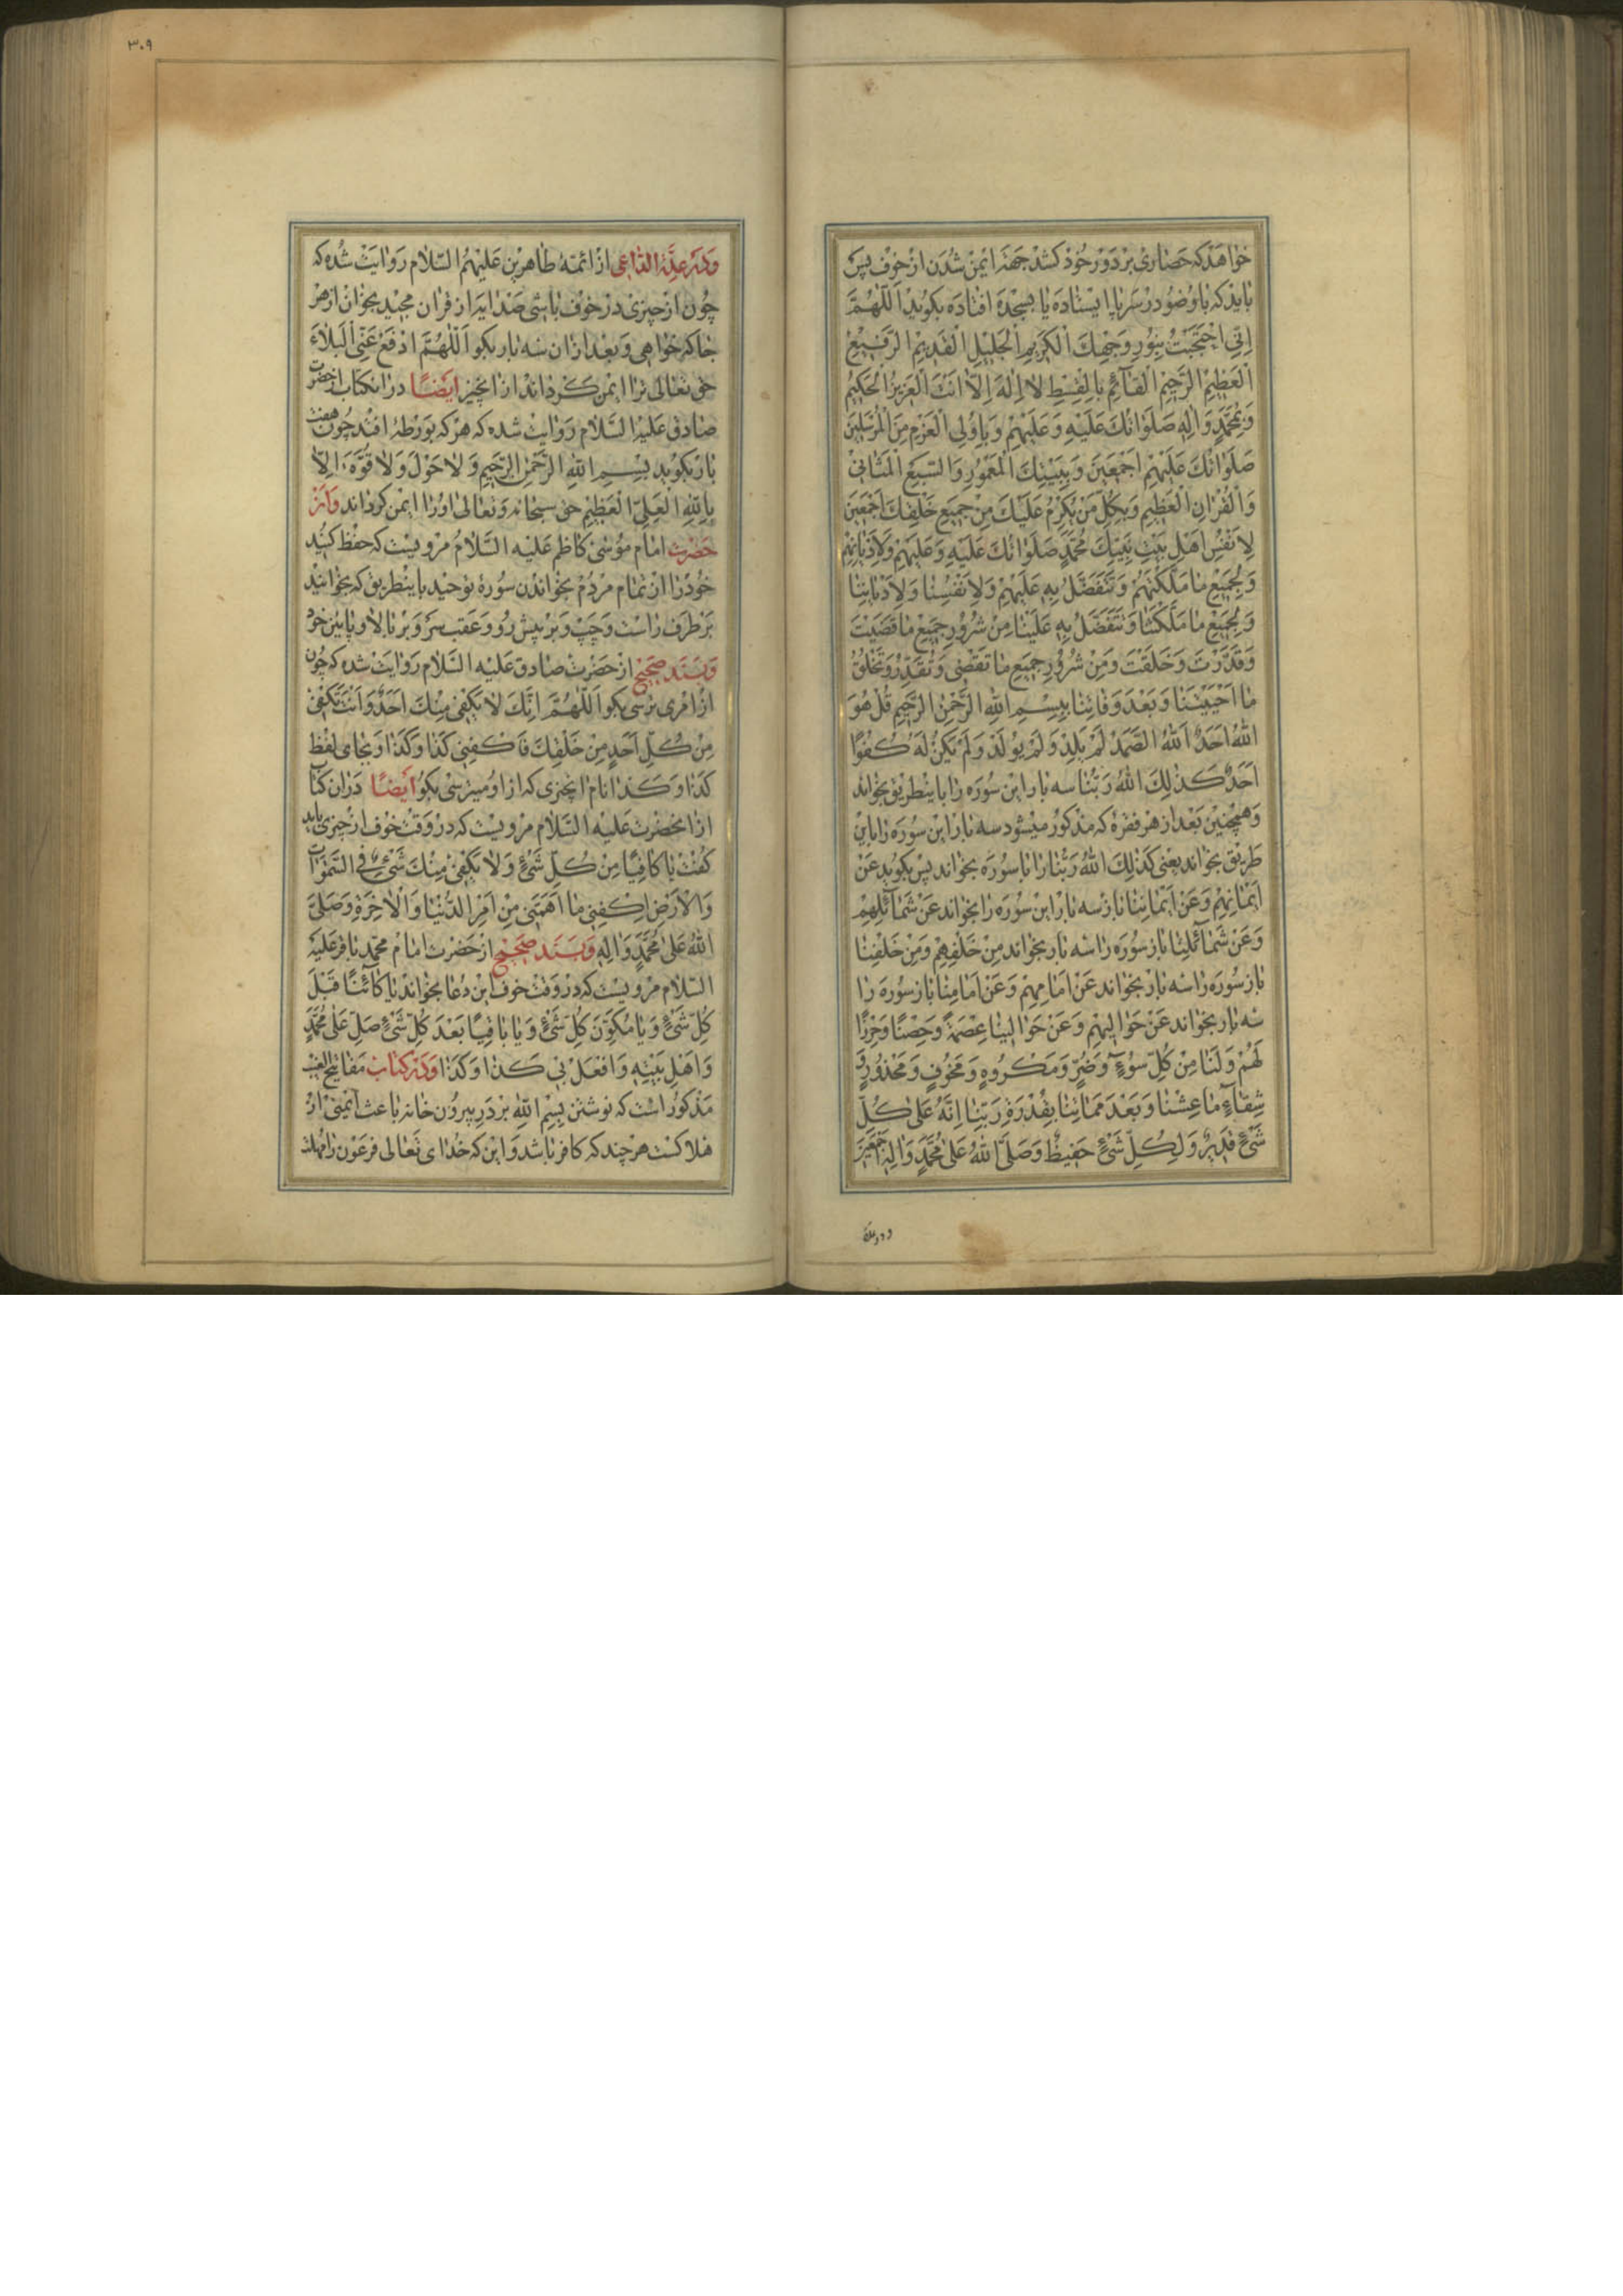 خواهد که حصاری بر دور خود کشد جهة ایمن شدن از خوف پس
باید که با وضو در سر پا ایستاده یا بسجده افتاده بکوید اَللّٰهُمَّ
اِنِّی احْتَجَبْتُ بِنُورِ وَجْهِكَ الْكَرِیمِ الْجَلِیْلِ الْقَدِیْمِ الرَّفِیْعِ
الْعَظِیْمِ الرَّحِیْمِ الْقَآئِمِ بِالْقِسْطِ لا اِلٰهَ اِلّا اَنْتَ الْعَزِیزُ الْحَكِیمُ
وَ بِمُحَمَّدٍ وَ اٰلِهِ صَلَوٰاتُكَ عَلَیْهِ وَ عَلَیْهِمْ وَ بِاُولِی الْعَزْمِ مِنَ الْمُرْسَلِیْنَ
صَلَوٰاتُكَ عَلَیْهِمْ اَجْمَعِیْنَ وَ بِبَیْتِكَ الْمَعْمُورِ وَ السَّبْعِ الْمَثٰانِیْ
وَ الْقُرْاٰنِ الْعَظِیمِ وَ بِكُلِّ مَنْ یَكْرُمُ عَلَیْكَ مِنْ جَمِیعِ خَلْقِكَ اَجْمَعِیْنَ
لِاَنْفُسِ اَهْلِ بَیْتِ نَبِیِّكَ مُحَمَّدٍ صَلَوٰاتُكَ عَلَیْهِ وَ عَلَیْهِمْ وَ لِاَدْیٰانِهِمْ
وَ بِجَمِیْعِ مٰا مَلَّكْتَهُمْ وَ تَتَفَضَّلُ بِهِ عَلَیْهِمْ وَ لِاَنْفُسِنٰا وَ لِاَدْیٰانِنٰا
وَ بِجَمِیْعِ مٰا مَلَّكْتَنٰا وَ تَتَفَضَّلُ بِهِ عَلَیْنٰا مِنْ شُرُوْرِ جَمِیْعِ مٰا قَضَیْتَ
وَ قَدَّرْتَ وَ خَلَقْتَ وَ مِنْ شُرُوْرِ جَمِیعِ مٰا تَقْضِی وَ تُقَدِّرُ وَ تَخْلُقُ
مٰا اَحْیَیْتَنٰا وَ بَعْدَ وَفٰاتِنٰا بِسْمِ اللّٰهِ الرَّحْمٰنِ الرَّحِیمِ قُلْ هُوَ
اللّٰهُ اَحَدٌ اَللّٰهُ الصَّمَدُ لَمْ یَلِدْ وَ لَمْ یُولَدْ وَ لَمْ یَكُنْ لَهُ كُفُوًا
اَحَدٌ كَذٰلِكَ اللّٰهُ رَبُّنٰا سه بار این سوره را باینطریق بخواند
وهمچنین بعد از هر فقره که مذکور میشود سه بار این سوره را باین
طریق بخواند یعنی کَذٰلِكَ اللّٰهُ رَبُّنٰا را با سوره بخواند پس بکوید عَنْ
اَیْمٰانِهِمْ وَ عَنْ اَیْمٰانِنٰا باز سه بار این سوره را بخواند عَنْ شَمٰآئِلِهِمْ
وَ عَنْ شَمٰآئِلِنٰا باز سوره را سه بار بخواند مِنْ خَلْفِهِمْ وَ مِنْ خَلْفِنٰا
باز سوره را سه بار بخواند عَنْ اَمٰامِهِمْ وَ عَنْ اَمٰامِنٰا باز سوره را
سه بار بخواند عَنْ حَوٰالَیْهِمْ وَ عَنْ حَوٰالَیْنٰا عِصْمَةً وَ حِصْنًا وَ حِرْزًا
لَهُمْ وَ لَنٰا مِنْ كُلِّ سُوْءٍ وَ ضُرٍّ وَ مَكْرُوهٍ وَ مَخُوفٍ وَ مَحْذُوْرٍ وَ
شِقٰآءٍ مٰا عِشْنٰا وَ بَعْدَ مَمٰاتِنٰا بِقُدْرَةِ رَبِّنٰا اِنَّهُ عَلٰی كُلِّ
شَیْءٍ قَدِیْرٌ وَ لِكُلِّ شَیْءٍ حَفِیظٌ وَ صَلَّی اللّٰهُ عَلٰی مُحَمَّدٍ وَ اٰلِهِ اَجْمَعِیْنَ
٣٠٩
ودر عدة الداعی از ائمه طاهرین علیهم السلام روایت شده که
چون از چیزی در خوف باشی صد ایه از قران مجید بخوان از هر
جا که خواهی و بعد از ان سه بار بکو اَللّٰهُمَّ ادْفَعْ عَنِّی الْبَلٰاءَ
حق تعالی ترا ایمن کرداند از انچیز ایضًا در انکتاب از حضرت
صادق علیه السلام روایت شده که هر که بورطهٔ افتد چون هفت
بار بکوید بِسْمِ اللّٰهِ الرَّحْمٰنِ الرَّحِیمِ وَ لٰا حَوْلَ وَ لٰا قُوَّةَ اِلّٰا
بِاللّٰهِ الْعَلِیِّ الْعَظِیْمِ حق سبحانه و تعالی او را ایمن کرداند واز
حضرت امام موسی کاظم علیه السلام مرویست که حفظ کنید
خود را از تمام مردم بخواندن سورهٔ توحید باینطریق که بخوانید
بر طرف راست و چپ و بر پیش رو و عقب سر و بر بالا و پایین خود
وبسند صحیح از حضرت صادق علیه السلام روایت شده که چون
از امری ترسی بکو اَللّٰهُمَّ اِنَّكَ لٰا یَكْفِیْ مِنْكَ اَحَدٌ وَ اَنْتَ تَكْفِیْ
مِنْ كُلِّ اَحَدٍ مِنْ خَلْقِكَ فَاكْفِنِی كَذٰا وَ كَذٰا و بجای لفظ
كَذٰا وَ كَذٰا نام انچیزی که از او میترسی بکو ایضًا در ان کتاب
از انحضرت علیه السلام مرویست که در وقت خوف از چیزی باید
کفت یٰا كٰافِیًا مِنْ كُلِّ شَیْءٍ وَ لٰا یَكْفِیْ مِنْكَ شَیْءٌ فِی السَّمٰوٰاتِ
وَ الْاَرْضِ اِكْفِنِی مٰا اَهَمَّنِی مِنْ اَمْرِ الدُّنْیٰا وَ الْاٰخِرَةِ وَ صَلَّی
اللّٰهُ عَلٰی مُحَمَّدٍ وَ اٰلِهِ وبسند صحیح از حضرت امام محمد باقر علیه
السلام مرویست که در وقت خوف این دعا بخواند یٰا كٰآئِنًا قَبْلَ
كُلِّ شَیْءٍ وَ یٰا مُكَوِّنَ كُلِّ شَیْءٍ وَ یٰا بٰاقِیًا بَعْدَ كُلِّ شَیْءٍ صَلِّ عَلٰی مُحَمَّدٍ
وَ اَهْلِ بَیْتِهِ وَ افْعَلْ بِی كَذٰا وَ كَذٰا ودر کتاب مفاتیح الغیب
مذکور است که نوشتن بسم الله بر در بیرون خانه باعث ایمنی از
هلاکست هر چند که کافر باشد و این که خدای تعالی فرعون را مهلت